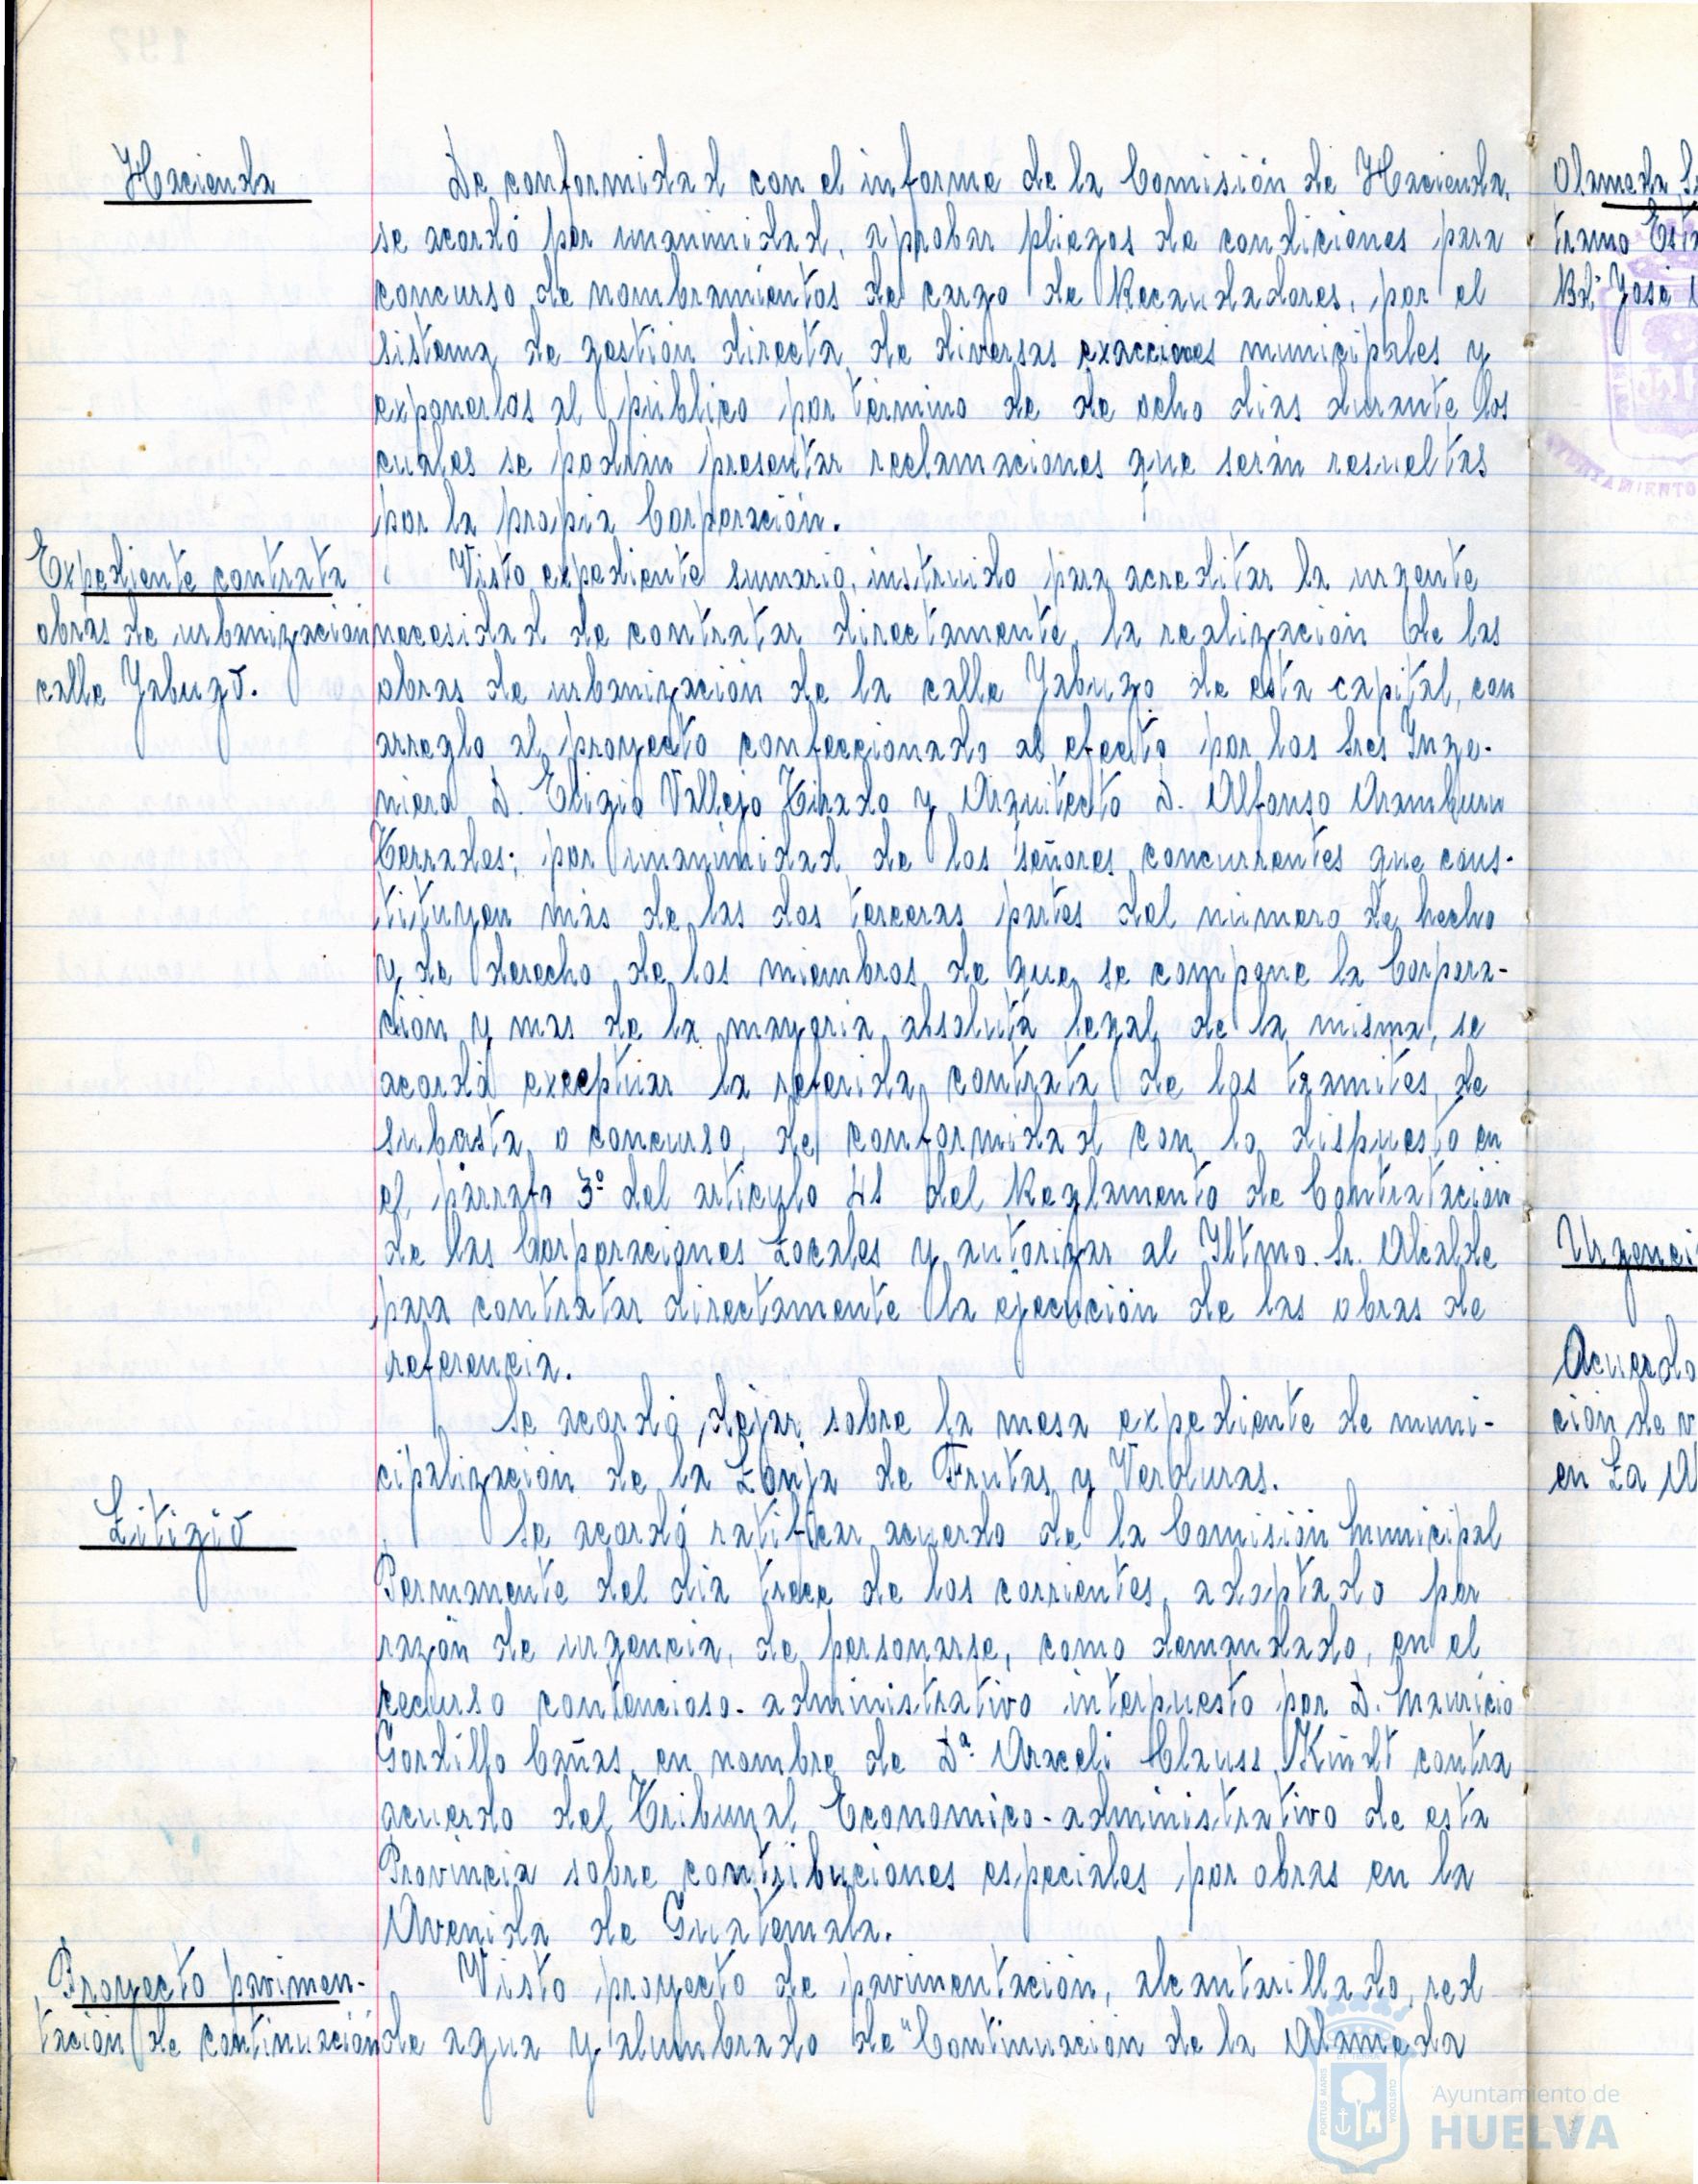 Hacienda
De conformidad con el informe de la Comisión de Hacienda,
se acordó por unanimidad, aprobar pliegos de condiciones para
concurso de nombramientos de cargo de Recaudadores, por el
sistema de gestión directa de diversas exacciones municipales y
exponerlos al público por término de de ocho dias durante los
cuales se podrán presentar reclamaciones que serán resueltas
por la propia Corporación.
Expediente contrata
obras de urbanización
calle Jabugo.
Visto expediente sumario, instruido para acreditar la urgente
necesidad de contratar directamente, la realización de las
obras de urbanización de la calle Jabugo de esta capital, con
arreglo al proyecto confeccionado al efecto por los Sres Inge-
niero D. Eligio Vallejo Hirado y Arquitecto D. Alfonso Aramburu
Terrades; por unanimidad de los señores concurrentes que cons-
tituyen más de las dos terceras partes del número de hecho
y de derecho de los miembros de que se compone la Corpora-
ción y mas de la mayoria absoluta legal de la misma, se
acordó exceptuar la referida contrata de los tramites de
subasta o concurso, de conformidad con lo dispuesto en
el párrafo 3º del articulo 41 del Reglamento de Contratación
de las Corporaciones Locales y autorizar al Iltmo. Sr. Alcalde
para contratar directamente la ejecución de las obras de
referencia.
Se acordó dejar sobre la mesa expediente de muni-
cipalización de la Lonja de Frutas y Verduras.
Litigio
Se acordó ratificar acuerdo de la Comisión Municipal
Permanente del dia trece de los corrientes, adoptado por
razón de urgencia, de personarse, como demandado, en el
recurso contencioso-administrativo interpuesto por D. Mauricio
Gordillo Cañas, en nombre de Dª. Araceli Clauss Kindt contra
acuerdo del Tribunal Economico-administrativo de esta
Provincia sobre contribuciones especiales por obras en la
Avenida de Guatemala.
Proyecto pavimen-
tación de continuación
Visto proyecto de pavimentación, alcantarillado, red
de agua y alumbrado de "Continuación de la Alameda
Alameda
tramo
Bdª José
Urgenci
Acuerdo
ción de
en La
Ayuntamiento de
HUELVA